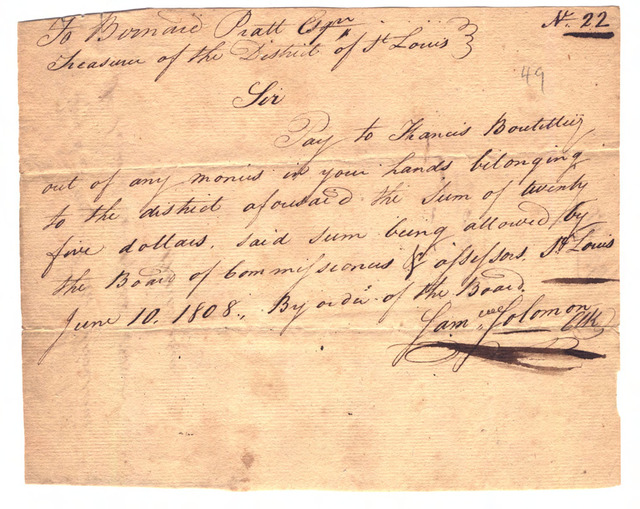 To Bernard Pratt Esqr. N. 22
Treasurer of the District of St Louis
49
Sir
Pay to Francis Boutillier
out of any monies in your hands belonging
to the district aforesaid the sum of twenty
five dollars, said sum being allowed by
the Board of Commissioners & assessors. St Louis
June 10. 1808., By order of the Board.
Samuel Solomon Clk